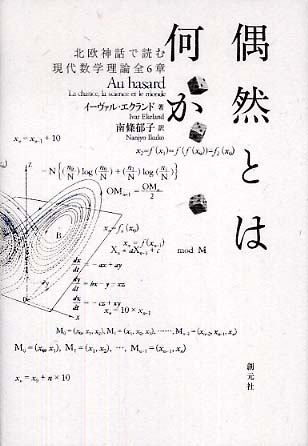 偶然とは
何か
北欧神話で読む
現代数学理論全6章
Au hasard
La chance, la science et le monde
イーヴァル・エクランド 著
Ivar Ekeland
南條郁子 訳
Nanjyo Ikuko
xₙ = xₙ₋₁ + 10
x₂=f (x₁)=f (f (x₀))=f₂ (x₀)
−N{(n₀/N) log (n₀/N) + (n₁/N) log (
OMₙ₊₁ = OMₙ/2
xₙ=fₙ (x₀)
xₙ = f (xₙ₋₁)
Xₙ = aXₙ₋₁+c mod M
Z
B
dx/dt = −ax + ay
dy/dt = bx − y − xz
dz/dt = −cz + xy
xₙ = 10 × xₙ₋₁
M₀ = (x₀, x₁, x₂), M₁ = (x₁, x₂, x₃), ……, Mₙ₋₂ = (xₙ₋₂, xₙ₋₁, xₙ)
M₀ = (x₀, x₁), M₁ = (x₁, x₂), …, Mₙ₋₁ = (xₙ₋₁, xₙ)
xₙ = x₀ + n × 10
創元社